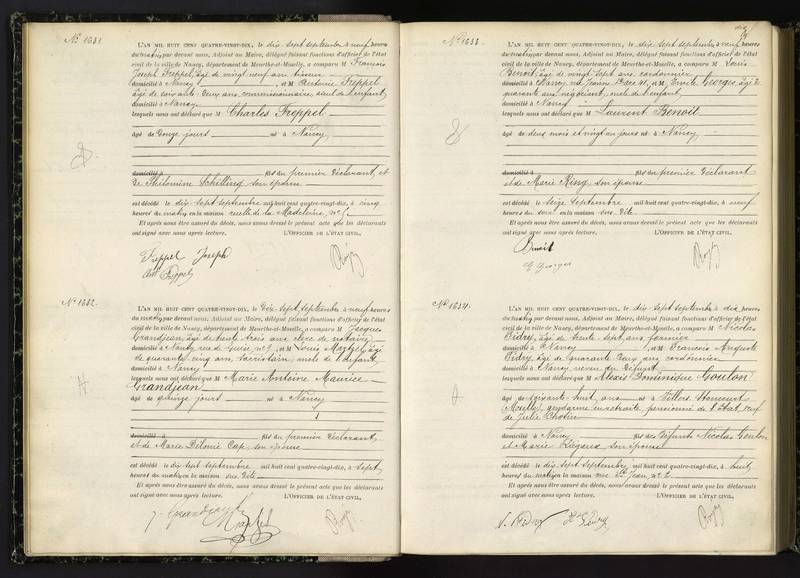 N° 1631
L'AN MIL HUIT CENT QUATRE-VINGT-DIX, le dix sept septembre à neuf heures
du matin par devant nous, Adjoint au Maire, délégué faisant fonctions d'officier de l'état
civil de la ville de Nancy, département de Meurthe-et-Moselle, a comparu M François
Joseph Freppel, âgé de vingt neuf ans
domicilié à Nancy, et M Antoine Freppel
âgé de soixante deux ans, commissionnaire, aïeul de l'enfant
domicilié à Nancy
lesquels nous ont déclaré que M Charles Freppel
âgé de douze jours né à Nancy
domicilié à fils du premier déclarant, et
de Philomène Schilling son épouse
est décédé le dix sept septembre mil huit cent quatre-vingt-dix, à cinq
heures du matin en la maison ruelle de la Madeleine, n°
Et après nous être assuré du décès, nous avons dressé le présent acte que les déclarants
ont signé avec nous après lecture. L'OFFICIER DE L'ÉTAT CIVIL,
Freppel Joseph
Ant Freppel
N° 1632
L'AN MIL HUIT CENT QUATRE-VINGT-DIX, le dix sept septembre à neuf heures
du matin par devant nous, Adjoint au Maire, délégué faisant fonctions d'officier de l'état
civil de la ville de Nancy, département de Meurthe-et-Moselle, a comparu M Jacques
Grandjean, âgé de trente trois ans, clerc de notaire,
domicilié à Nancy rue de n° 9, et M Louis Martzel, âgé
de quarante cinq ans, sacristain, oncle de l'enfant,
domicilié à Nancy
lesquels nous ont déclaré que M Marie Antoine Maurice
Grandjean
âgé de quinze jours né à Nancy
domicilié à fils du premier déclarant,
et de Marie Cap, son épouse
est décédé le dix sept septembre mil huit cent quatre-vingt-dix, à sept
heures du matin en la maison sus dite
Et après nous être assuré du décès, nous avons dressé le présent acte que les déclarants
ont signé avec nous après lecture. L'OFFICIER DE L'ÉTAT CIVIL,
J. Grandjean
Martzel
N° 1633
L'AN MIL HUIT CENT QUATRE-VINGT-DIX, le dix sept septembre à neuf heures
du matin par devant nous, Adjoint au Maire, délégué faisant fonctions d'officier de l'état
civil de la ville de Nancy, département de Meurthe-et-Moselle, a comparu M Louis
Benoit, âgé de vingt sept ans, cordonnier
domicilié à Nancy, rue, et M Emile Georges, âgé de
quarante ans, négociant, oncle de l'enfant
domicilié à Nancy
lesquels nous ont déclaré que M Laurent Benoit
âgé de deux mois et vingt un jours né à Nancy
domicilié à fils du premier déclarant
et de Marie Ring, son épouse
est décédé le seize septembre mil huit cent quatre-vingt-dix, à neuf
heures du soir en la maison sus dite
Et après nous être assuré du décès, nous avons dressé le présent acte que les déclarants
ont signé avec nous après lecture. L'OFFICIER DE L'ÉTAT CIVIL,
Benoit
E Georges
N° 1634
L'AN MIL HUIT CENT QUATRE-VINGT-DIX, le dix sept septembre à dix heures
du matin par devant nous, Adjoint au Maire, délégué faisant fonctions d'officier de l'état
civil de la ville de Nancy, département de Meurthe-et-Moselle, a comparu M Nicolas
Pidry, âgé de trente sept ans,
domicilié à Nancy, et M François Auguste
Pidry, âgé de quarante deux ans, cordonnier
domicilié à Nancy neveu du défunt
lesquels nous ont déclaré que M Alexis Dominique Goulon
âgé de soixante huit ans né à Villers
gendarme en retraite, pensionné de l'Etat, veuf
de Julie
domicilié à Nancy fils des défunts Nicolas Goulon
et Marie son épouse
est décédé le dix sept septembre mil huit cent quatre-vingt-dix, à huit
heures du matin en la maison rue St Jean, n°
Et après nous être assuré du décès, nous avons dressé le présent acte que les déclarants
ont signé avec nous après lecture. L'OFFICIER DE L'ÉTAT CIVIL,